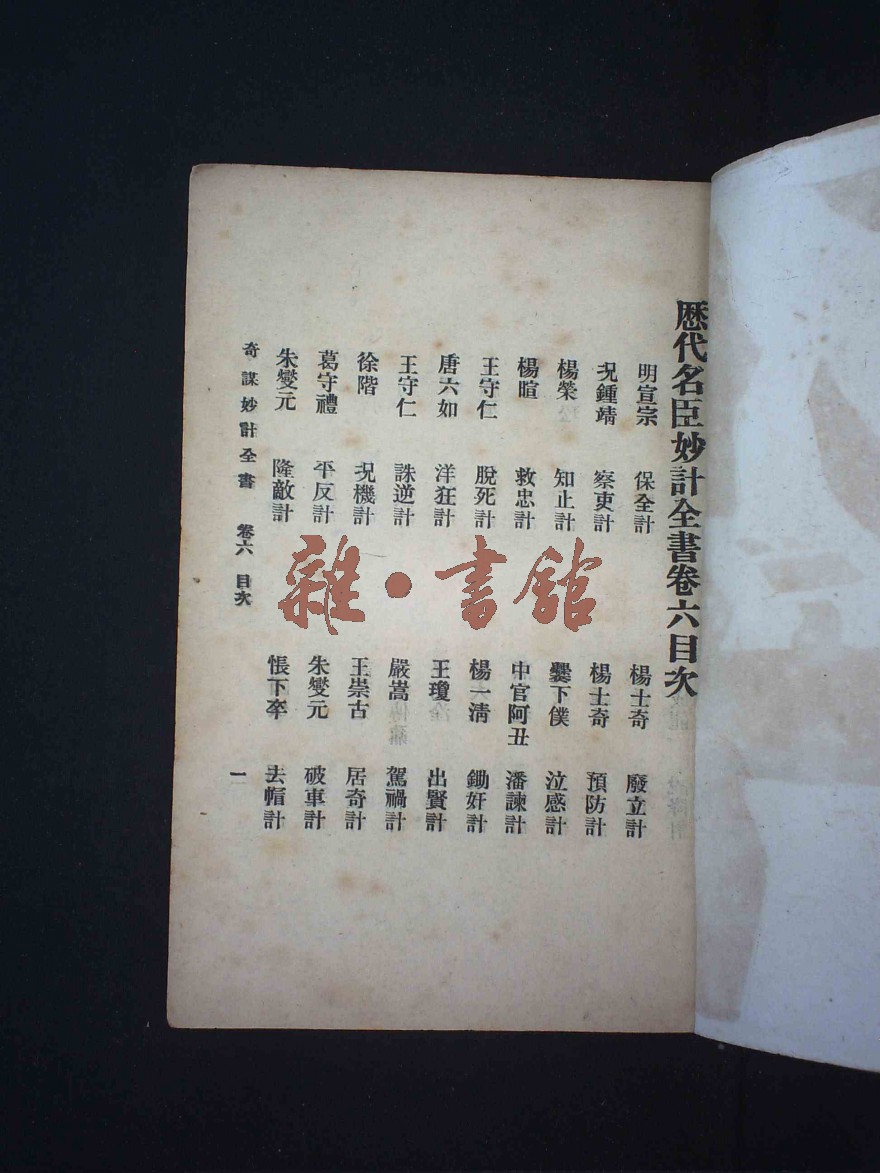 歷代名臣妙計全書卷六目次
明宣宗 保全計 楊士奇 廢立計
況鍾靖 察吏計 楊士奇 預防計
楊榮 知止計 爨下僕 泣感計
楊暄 救忠計 中官阿丑 潘諫計
王守仁 脫死計 楊一清 鋤奸計
唐六如 洋狂計 王瓊 出賢計
王守仁 誅逆計 嚴嵩 駕禍計
徐階 況機計 王崇古 居奇計
葛守禮 平反計 朱燮元 破車計
朱燮元 隆敵計 悵下卒 去帽計
奇謀妙計全書 卷六 目次 一
雜·書館